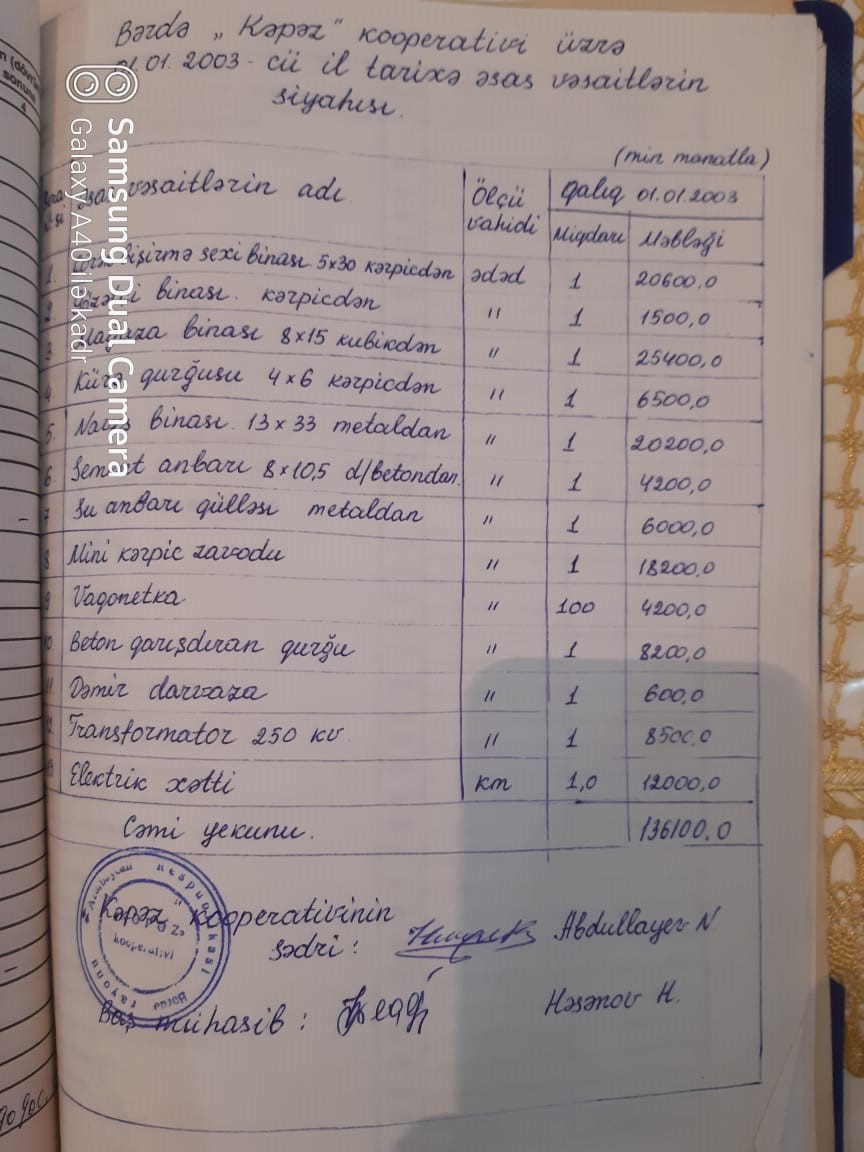 Bərdə „Kəpəz" kooperativi üzrə
01.01.2003-cü il tarixə əsas vəsaitlərin
siyahısı.
(min manatla)
Əsas vəsaitlərin adı
Ölçü vahidi
Qalıq 01.01.2003
Miqdarı
Məbləği
1. bişirmə sexi binası 5x30 kərpicdən ədəd 1 20600,0
2 binası. kərpicdən " 1 1500,0
3 Mağaza binası 8x15 kubikdən " 1 25400,0
4. Kürə qurğusu 4x6 kərpicdən " 1 6500,0
5. binası. 13x33 metaldan " 1 20200,0
6. Sement anbarı 8x10,5 d/betondan. " 1 4200,0
7 Su anbarı qülləsi metaldan " 1 6000,0
8 Mini kərpic zavodu " 1 18200,0
9 Vagonetka " 100 4200,0
10 Beton qarışdıran qurğu " 1 8200,0
11. Dəmir darvaza " 1 600,0
12. Transformator 250 kv. " 1 8500,0
13 Elektrik xətti km 1,0 12000,0
Cəmi yekunu. 136100,0
Kəpəz kooperativinin
sədri: Abdullayev N.
Baş mühasib: Həsənov H.
Azərbaycan Respublikası
Bərdə rayonu
kooperativi
Samsung Dual Camera
Galaxy A40 ilə kadr
sonuna
4